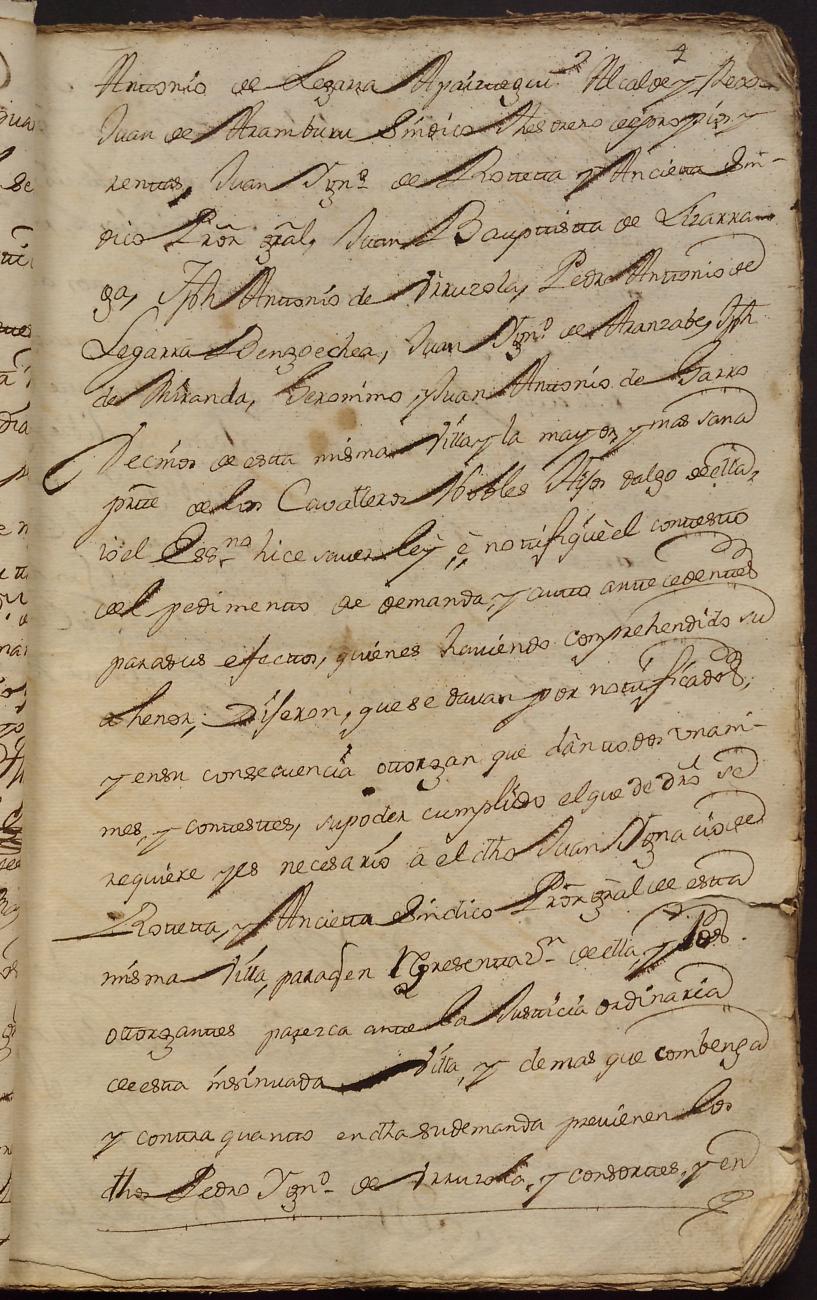 4
Antonio de Legarra Apairregui Alcalde y
Juan de Aramburu Sindico Thesorero de propios y
renttas, Juan Ygnº de Rotetta y Ancietta Sin-
dico Prōr gral, Juan Bauptistta de Lizarra-
ga, Jph Antonio de Yrruzola, Pedro Antonio de
Legarra Bengoechea, Juan Ygnº de Aranzabe, Jph
de Miranda, Geronimo, y Juan Antonio de Garro
Vecinos de estta misma Villa y la mayor, y mas sana
partte de los Cavalleros Nobles Hijos dalgo de ella,
io el Essno hice saver ley, è, nottifiquè el contextto
del pedimentto de demanda, y autto anttecedenttes
para sus efecttos, quienes haviendo comprehendido su
thenor, Dijeron, que se davan por nottificados,
y en su consecuencia ottorgan que dàn ttodos unani-
mes, y conttesttes, su poder cumplido el que de drò se
requiere y es necesario à el dho Juan Ygnacio de
Rotetta, y Ancietta Sindico Prōr gral de estta
misma Villa, para q̄ en Representtazn de ella, y los
ottorganttes parezca antte la Justticia ordinaria
de estta insinuada Villa, y demas que combenga
y conttra quantto en dha su demanda previenen los
dhos Pedro Ygnº de Yrruzola, y consorttes, y en